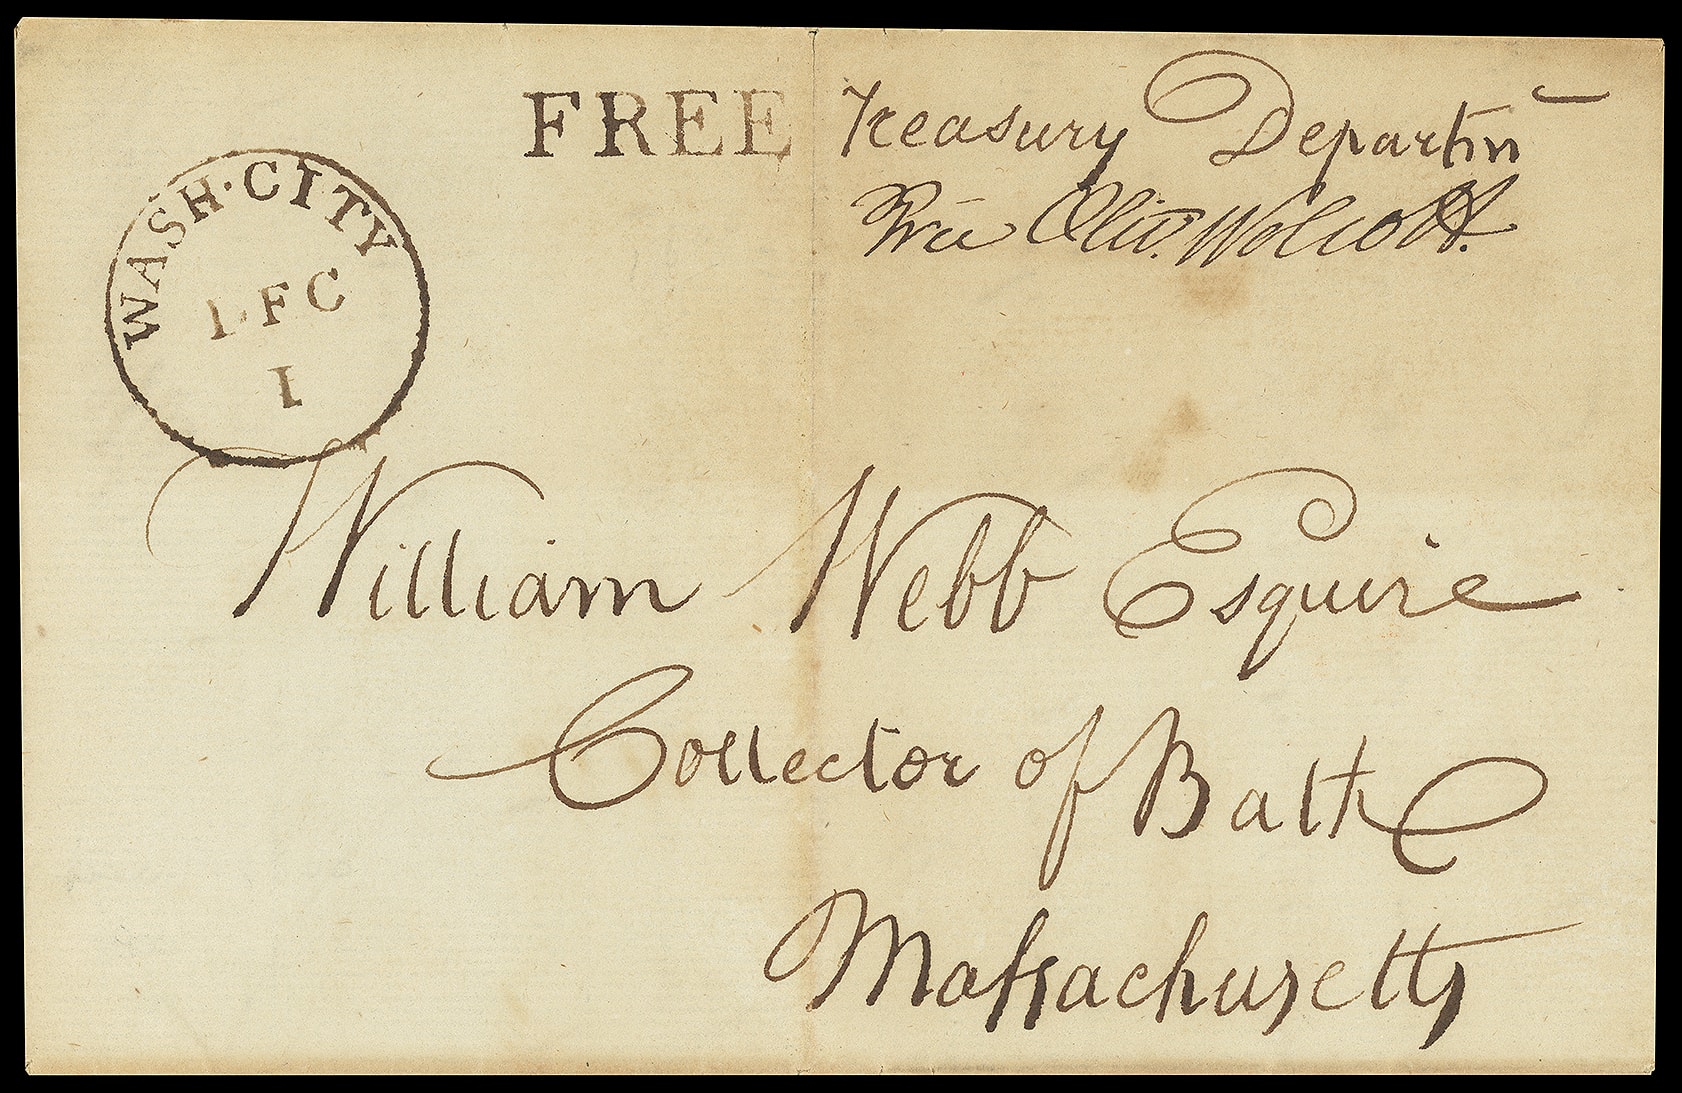 FREE
Treasury Departm
Free Oliv. Wolcott.
WASH·CITY
DEC
1
William Webb Esquire
Collector of Bath
Maſsachusetts